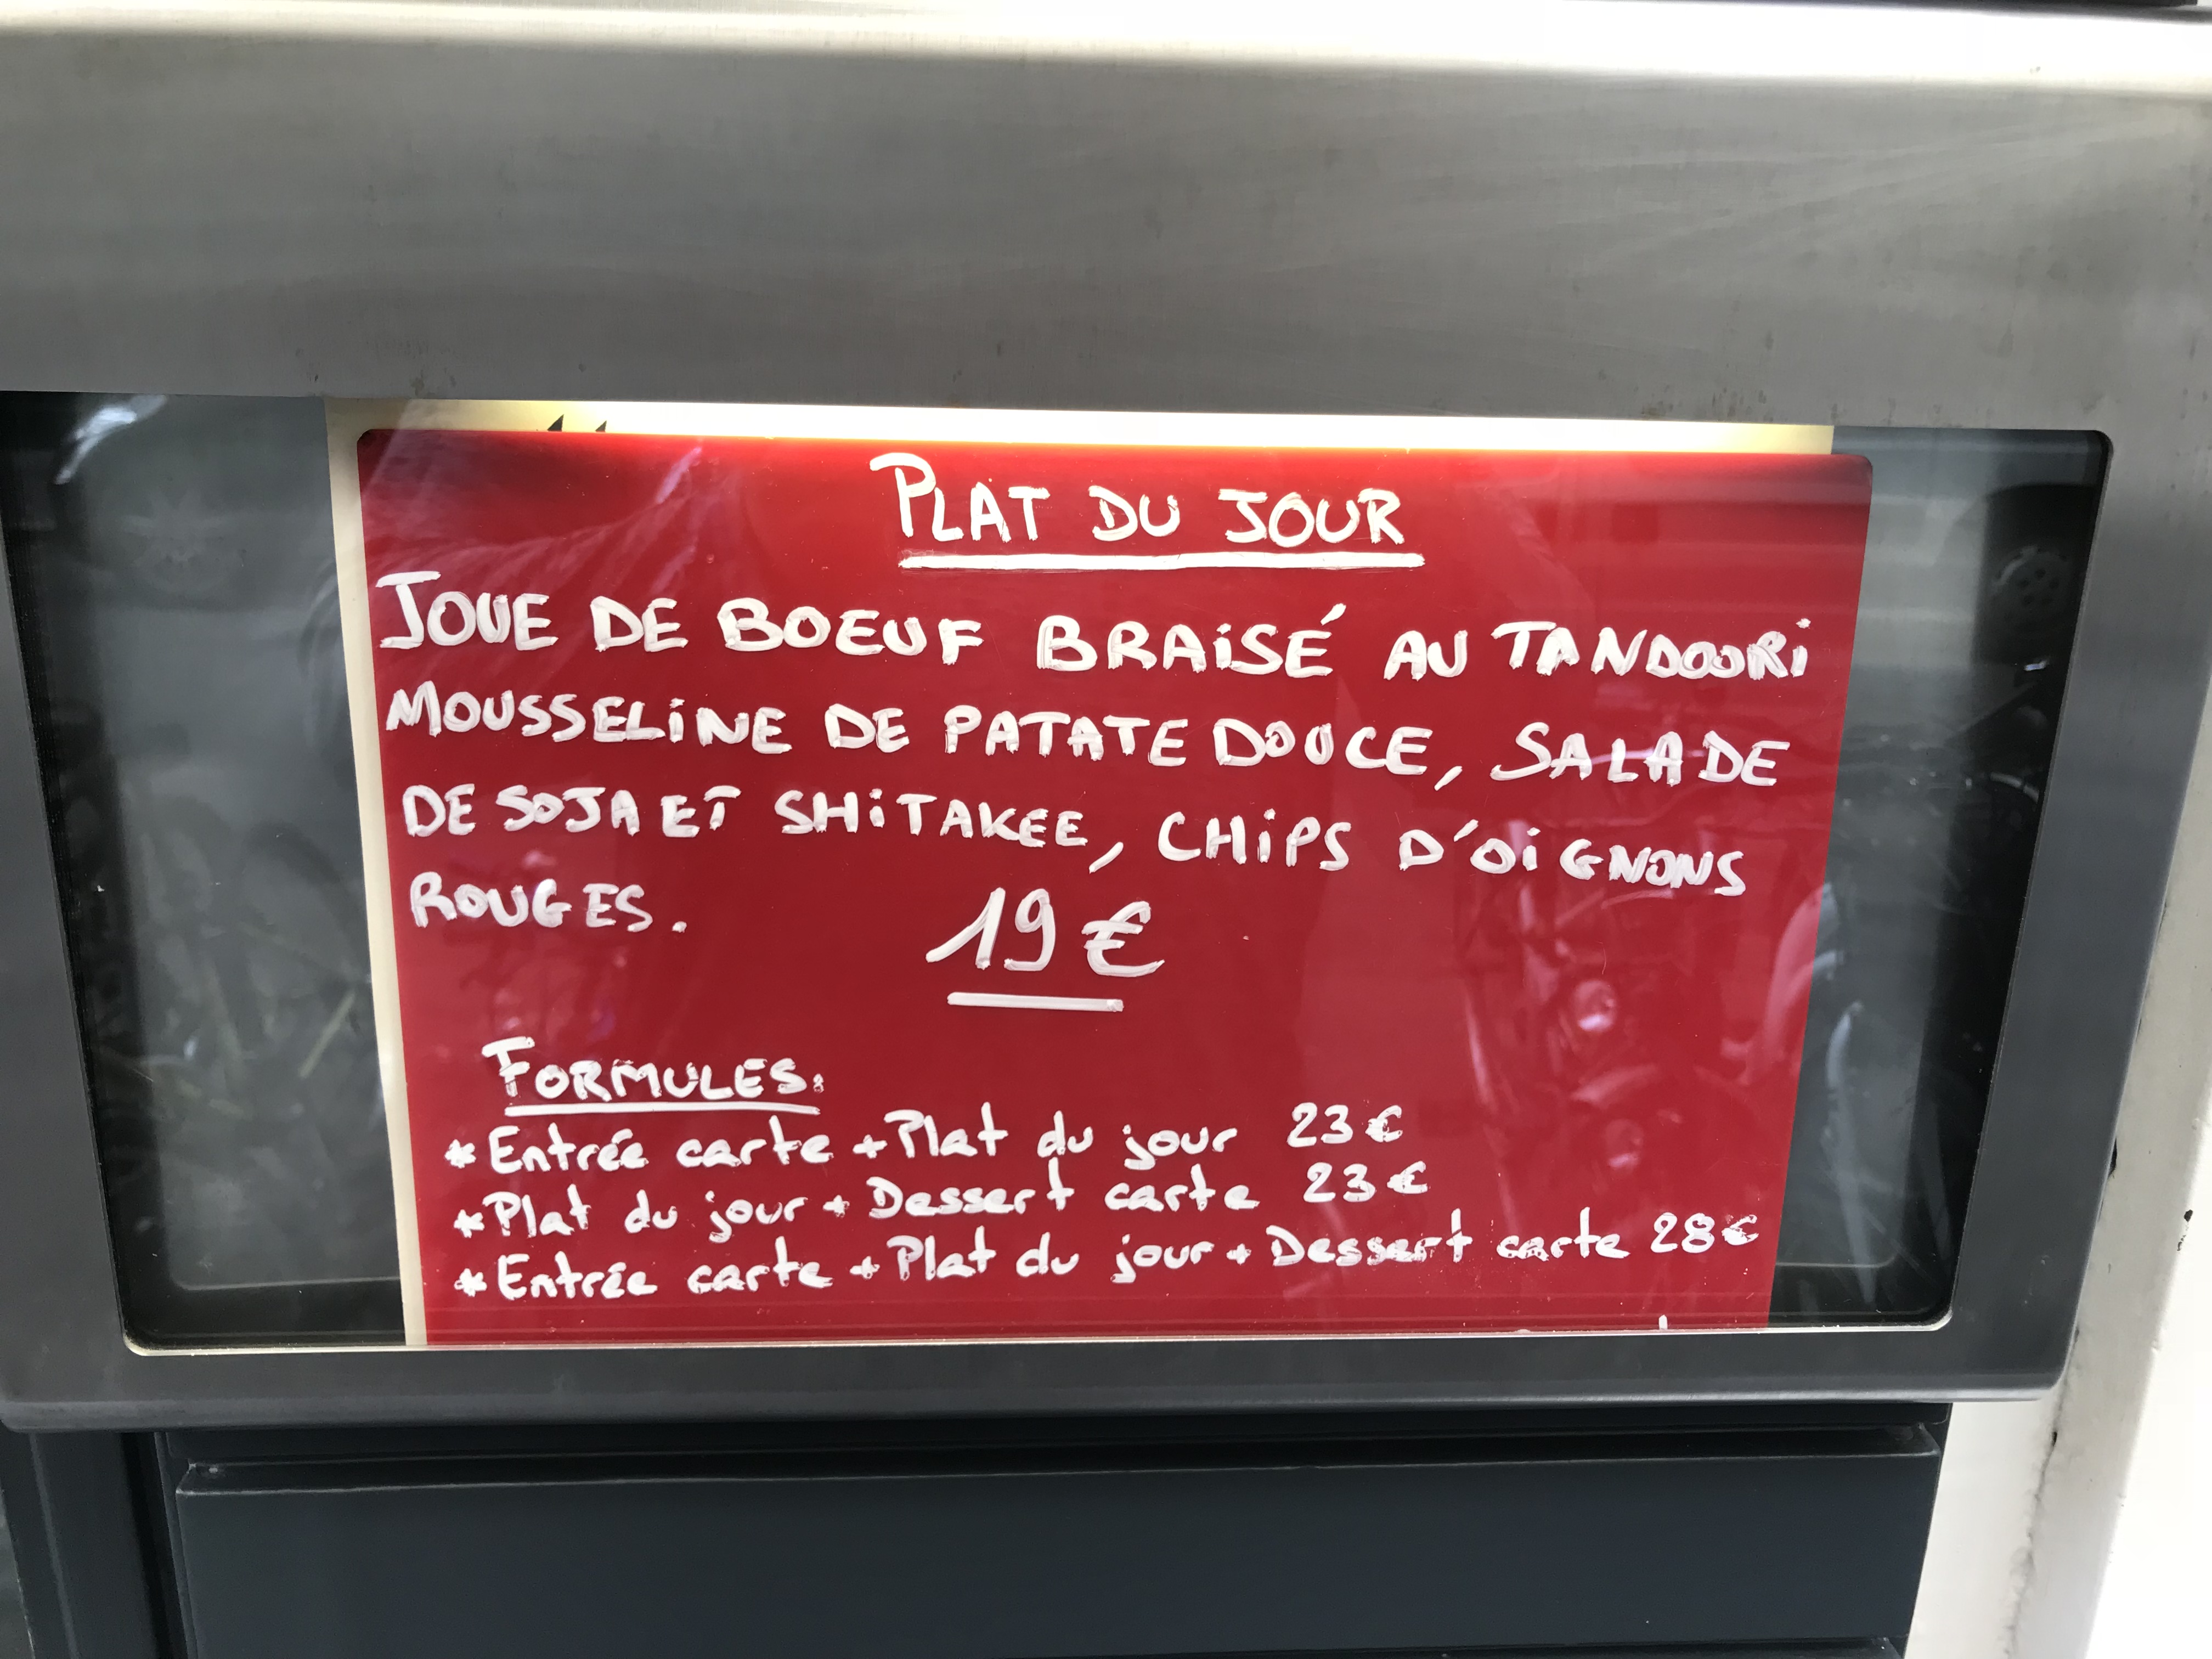 PLAT DU JOUR
JOUE DE BOEUF BRAISÉ AU TANDOORI
MOUSSELINE DE PATATE DOUCE, SALADE
DE SOJA ET SHITAKEE, CHIPS D'OIGNONS
ROUGES.
19 €
FORMULES:
* Entrée carte + Plat du jour 23 €
* Plat du jour + Dessert carte 23 €
* Entrée carte + Plat du jour + Dessert carte 28 €